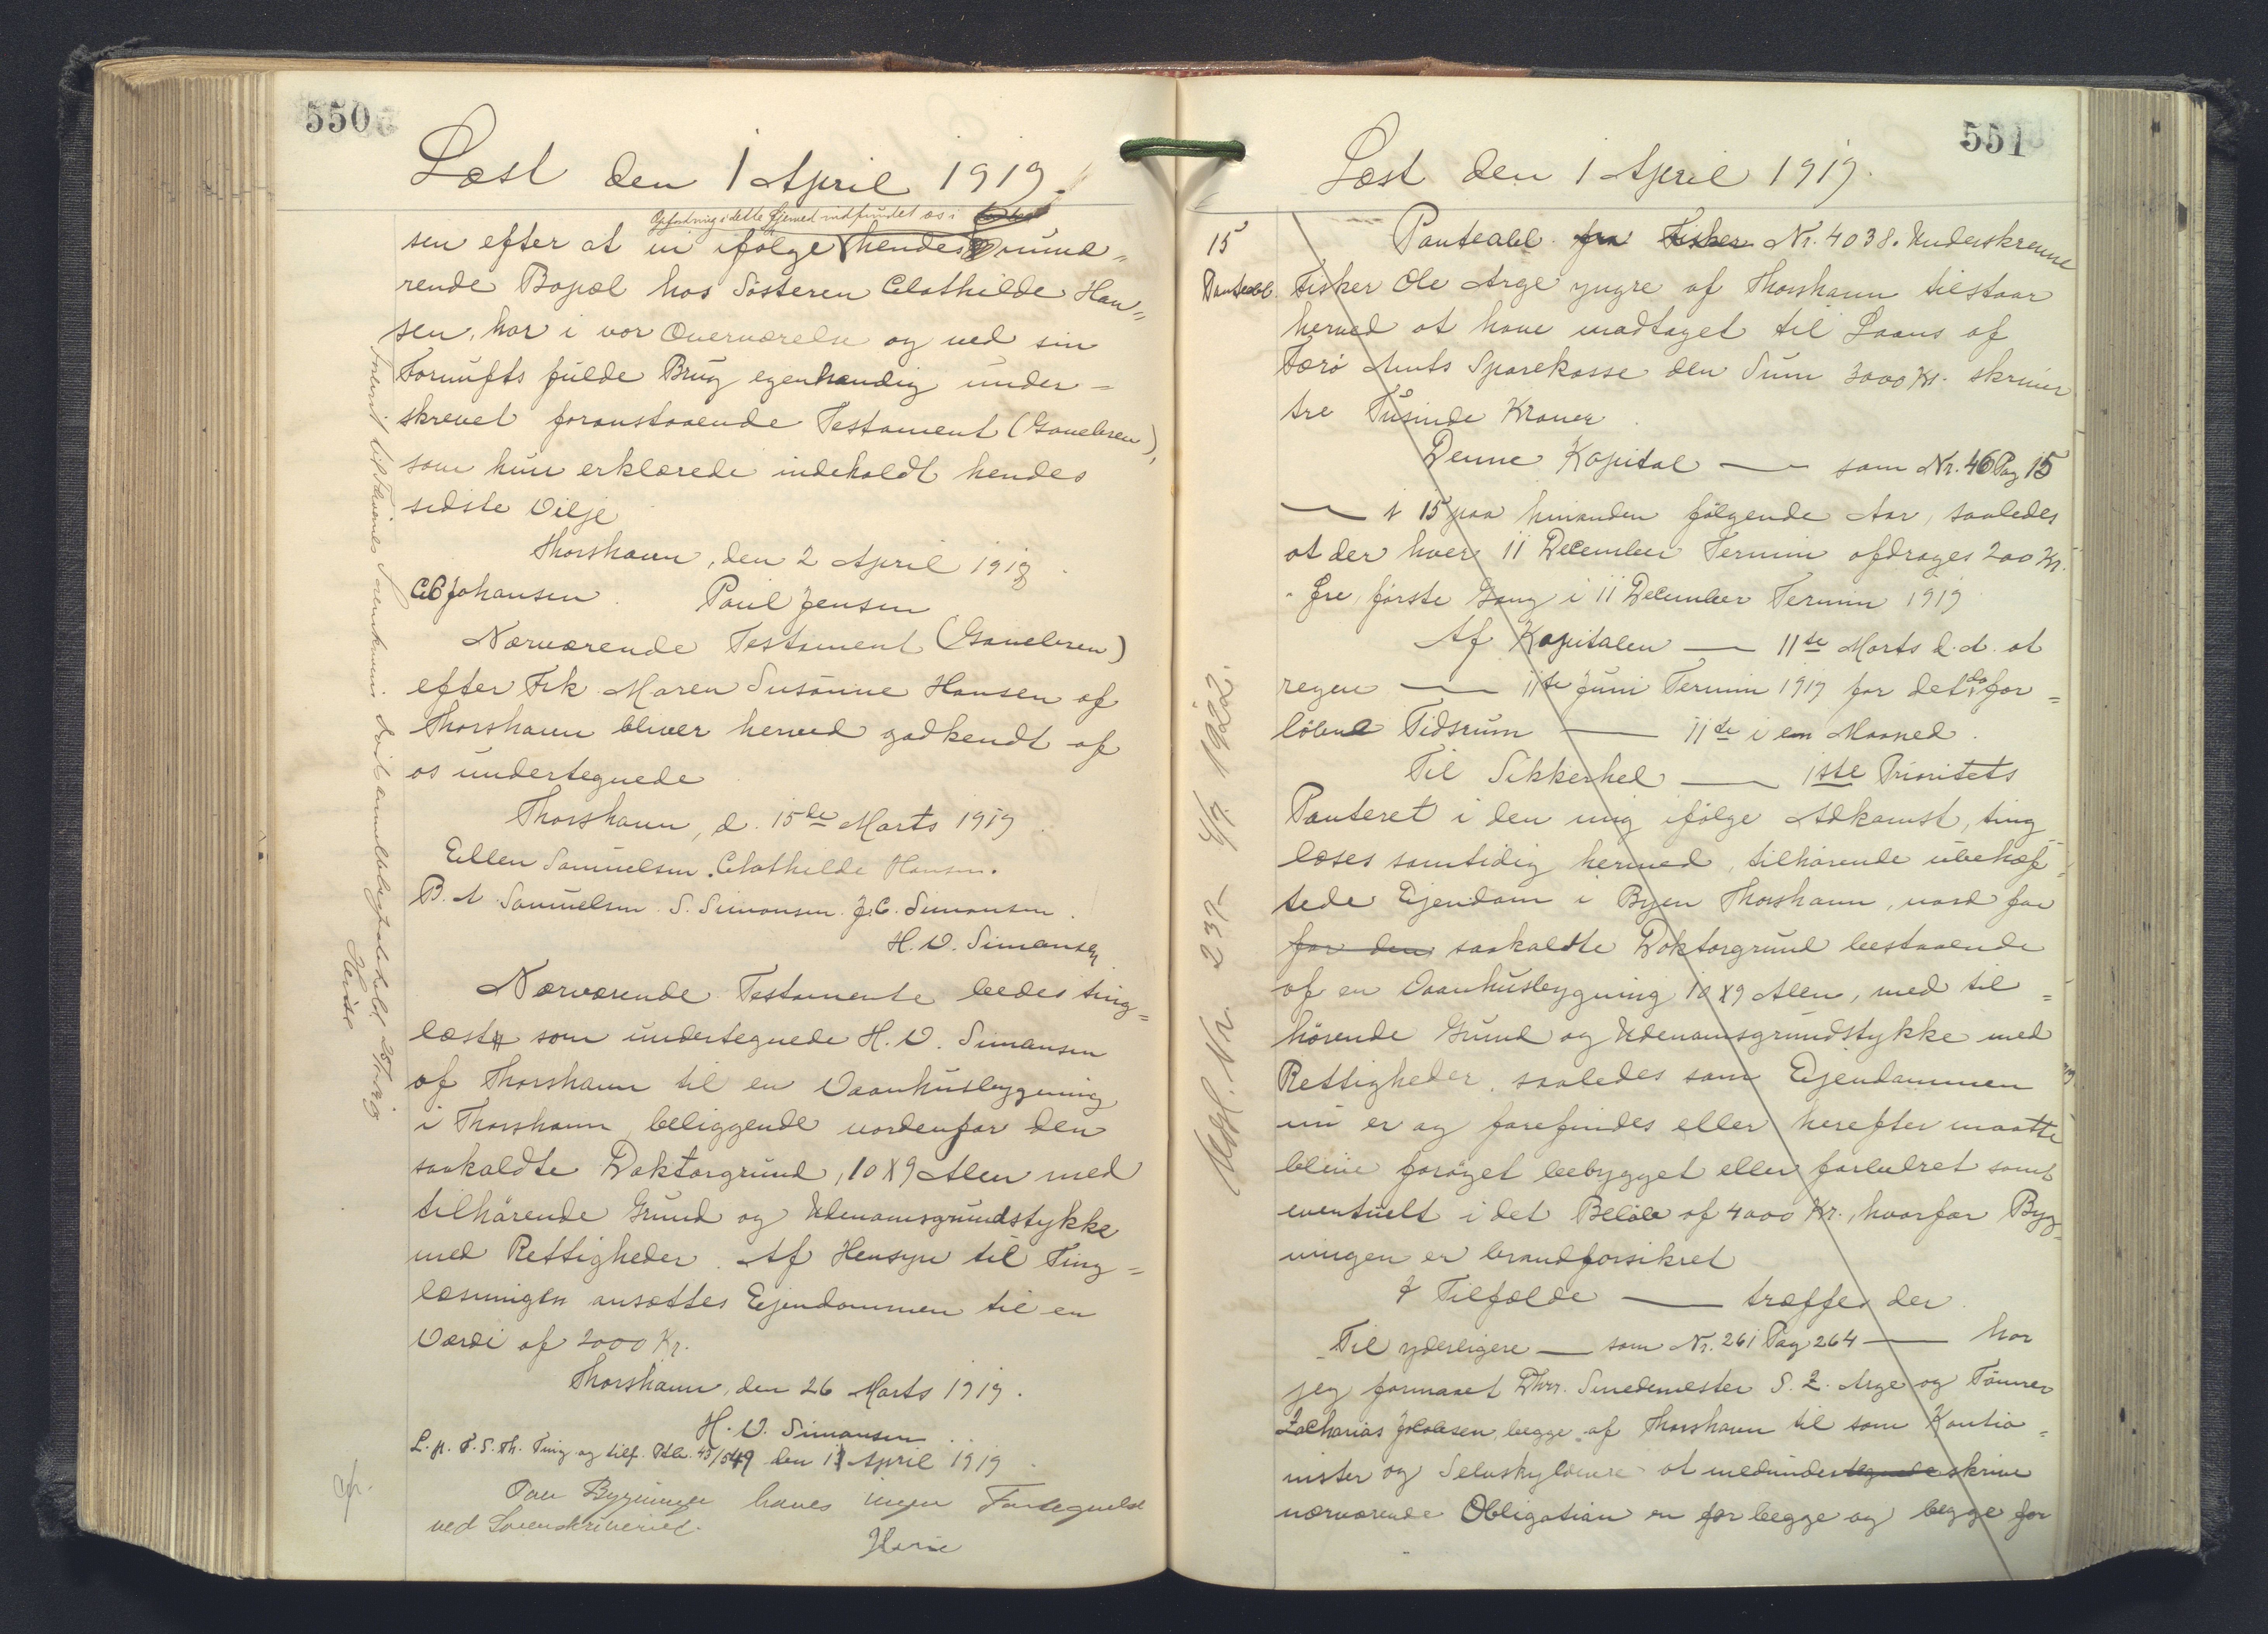 550
Læst den 1 April 1919.
Opfordring i dette Øjemed indfundet os i
sen efter at vi ifølge hendes nuvæ-
rende Bopæl hos Søsteren Clothilde Han-
sen, har i vor Overværelse og ved sin
Fornufts fulde Brug egenhændig under-
skrevet foranstaaende Testament (Gavebrev),
som hun erklærede indeholdt hendes
sidste Vilje
Thorshavn, den 2 April 1918.
C B Johansen. Poul Jensen
Nærværende Testament (Gavebrev)
efter Frk. Maren Susanne Hansen af
Thorshavn bliver herved godkendt af
os undertegnede
Thorshavn, d. 15de Marts 1919.
Ellen Samuelsen. Clothilde Hansen.
B. A. Samuelsen. S. Simonsen. J. C. Simonsen.
H. V. Simonsen
Nærværende Testamente bedes ting-
læst som undertegnede H. V. Simonsen
af Thorshavn til en Vaanhusbygning
i Thorshavn beliggende nordenfor den
saakaldte Doktorgrund, 10 X 9 Alen med
tilhørende Grund og Udenomsgrundstykke
med Rettigheder. Af Hensyn til Ting-
læsningen ansættes Ejendommen til en
Værdi af 2000 Kr.
Thorshavn, den 26 Marts 1919.
H. V. Simonsen
L. p. F. S. Th. Ting og tilf. Ptb. 45/549 den 1 April 1919.
Paa Bygningen haves ingen Fortegnelse
ved Sorenskriveriet.
551
Læst den 1 April 1919.
15
Panteobl.
Panteobl. fra Fisker Nr. 4038. Underskrevne
Fisker Ole Arge yngre af Thorshavn tilstaar
herved at have modtaget til Laans af
Færø Amts Sparekasse den Sum 3000 Kr. skriver
tre Tusinde Kroner.
Denne Kapital — som Nr. 46 Pag 15
— i 15 paa hinanden følgende Aar, saaledes
at der hver 11 December Termin afdrages 200 Kr.
- Øre, første Gang i 11 December Termin 1919
Af Kapitalen — 11te Marts d. A. at
regne — 11te Juni Termin 1919 for det da for-
løbne Tidsrum — 11te i en Maaned.
Til Sikkerhed — 1ste Prioritets
Panteret i den mig ifølge Adkomst, ting-
læses samtidig hermed, tilhørende ubehæf-
tede Ejendom i Byen Thorshavn, nord for
for den saakaldte Doktorgrund bestaaende
af en Vaanhusbygning 10 X 9 Alen, med til-
hørende Grund og Udenomsgrundstykke med
Rettigheder, saaledes som Ejendommen
nu er og forefindes eller herefter maatte
blive forøget bebygget eller forbedret samt
eventuelt i det Beløb af 4000 Kr., hvorfor Byg-
ningen er brandforsikret
I Tilfælde — træffes der.
Til yderligere — som Nr. 261 Pag 264 — har
jeg formaaet Dhrr. Smedemester S. Z. Arge og Tømrer
Zacharias Jacobsen, begge af Thorshavn til som Kautio-
nister og Selvskyldnere at medundertegnede skrive
nærværende Obligation en for begge og begge for
Udsl. Nr. 237 - 4/7. 1922.